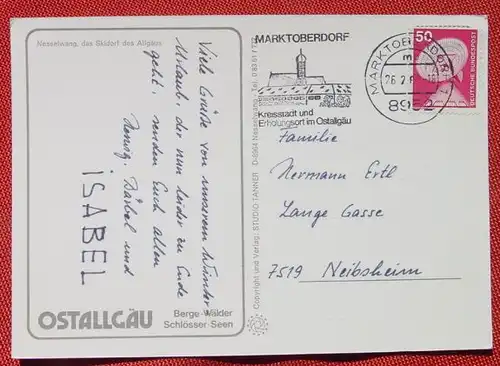 Nesselwang, das Skidorf des Allgäus
Viele Grüße von unserem Winter-
Urlaub, der nun leider zu Ende
geht, senden Euch allen
Bärbel und
ISABEL
OSTALLGÄU
Berge-Wälder
Schlösser-Seen
Copyright und Verlag: STUDIO TANNER D-8964 Nesselwang - Tel. 0 83 61 /
MARKTOBERDORF
Kreisstadt und
Erholungsort im Ostallgäu
MARKTOBERDORF
26.2.8
895
50
DEUTSCHE BUNDESPOST
Familie
Hermann Ertl
Lange Gasse
7519 Neibsheim